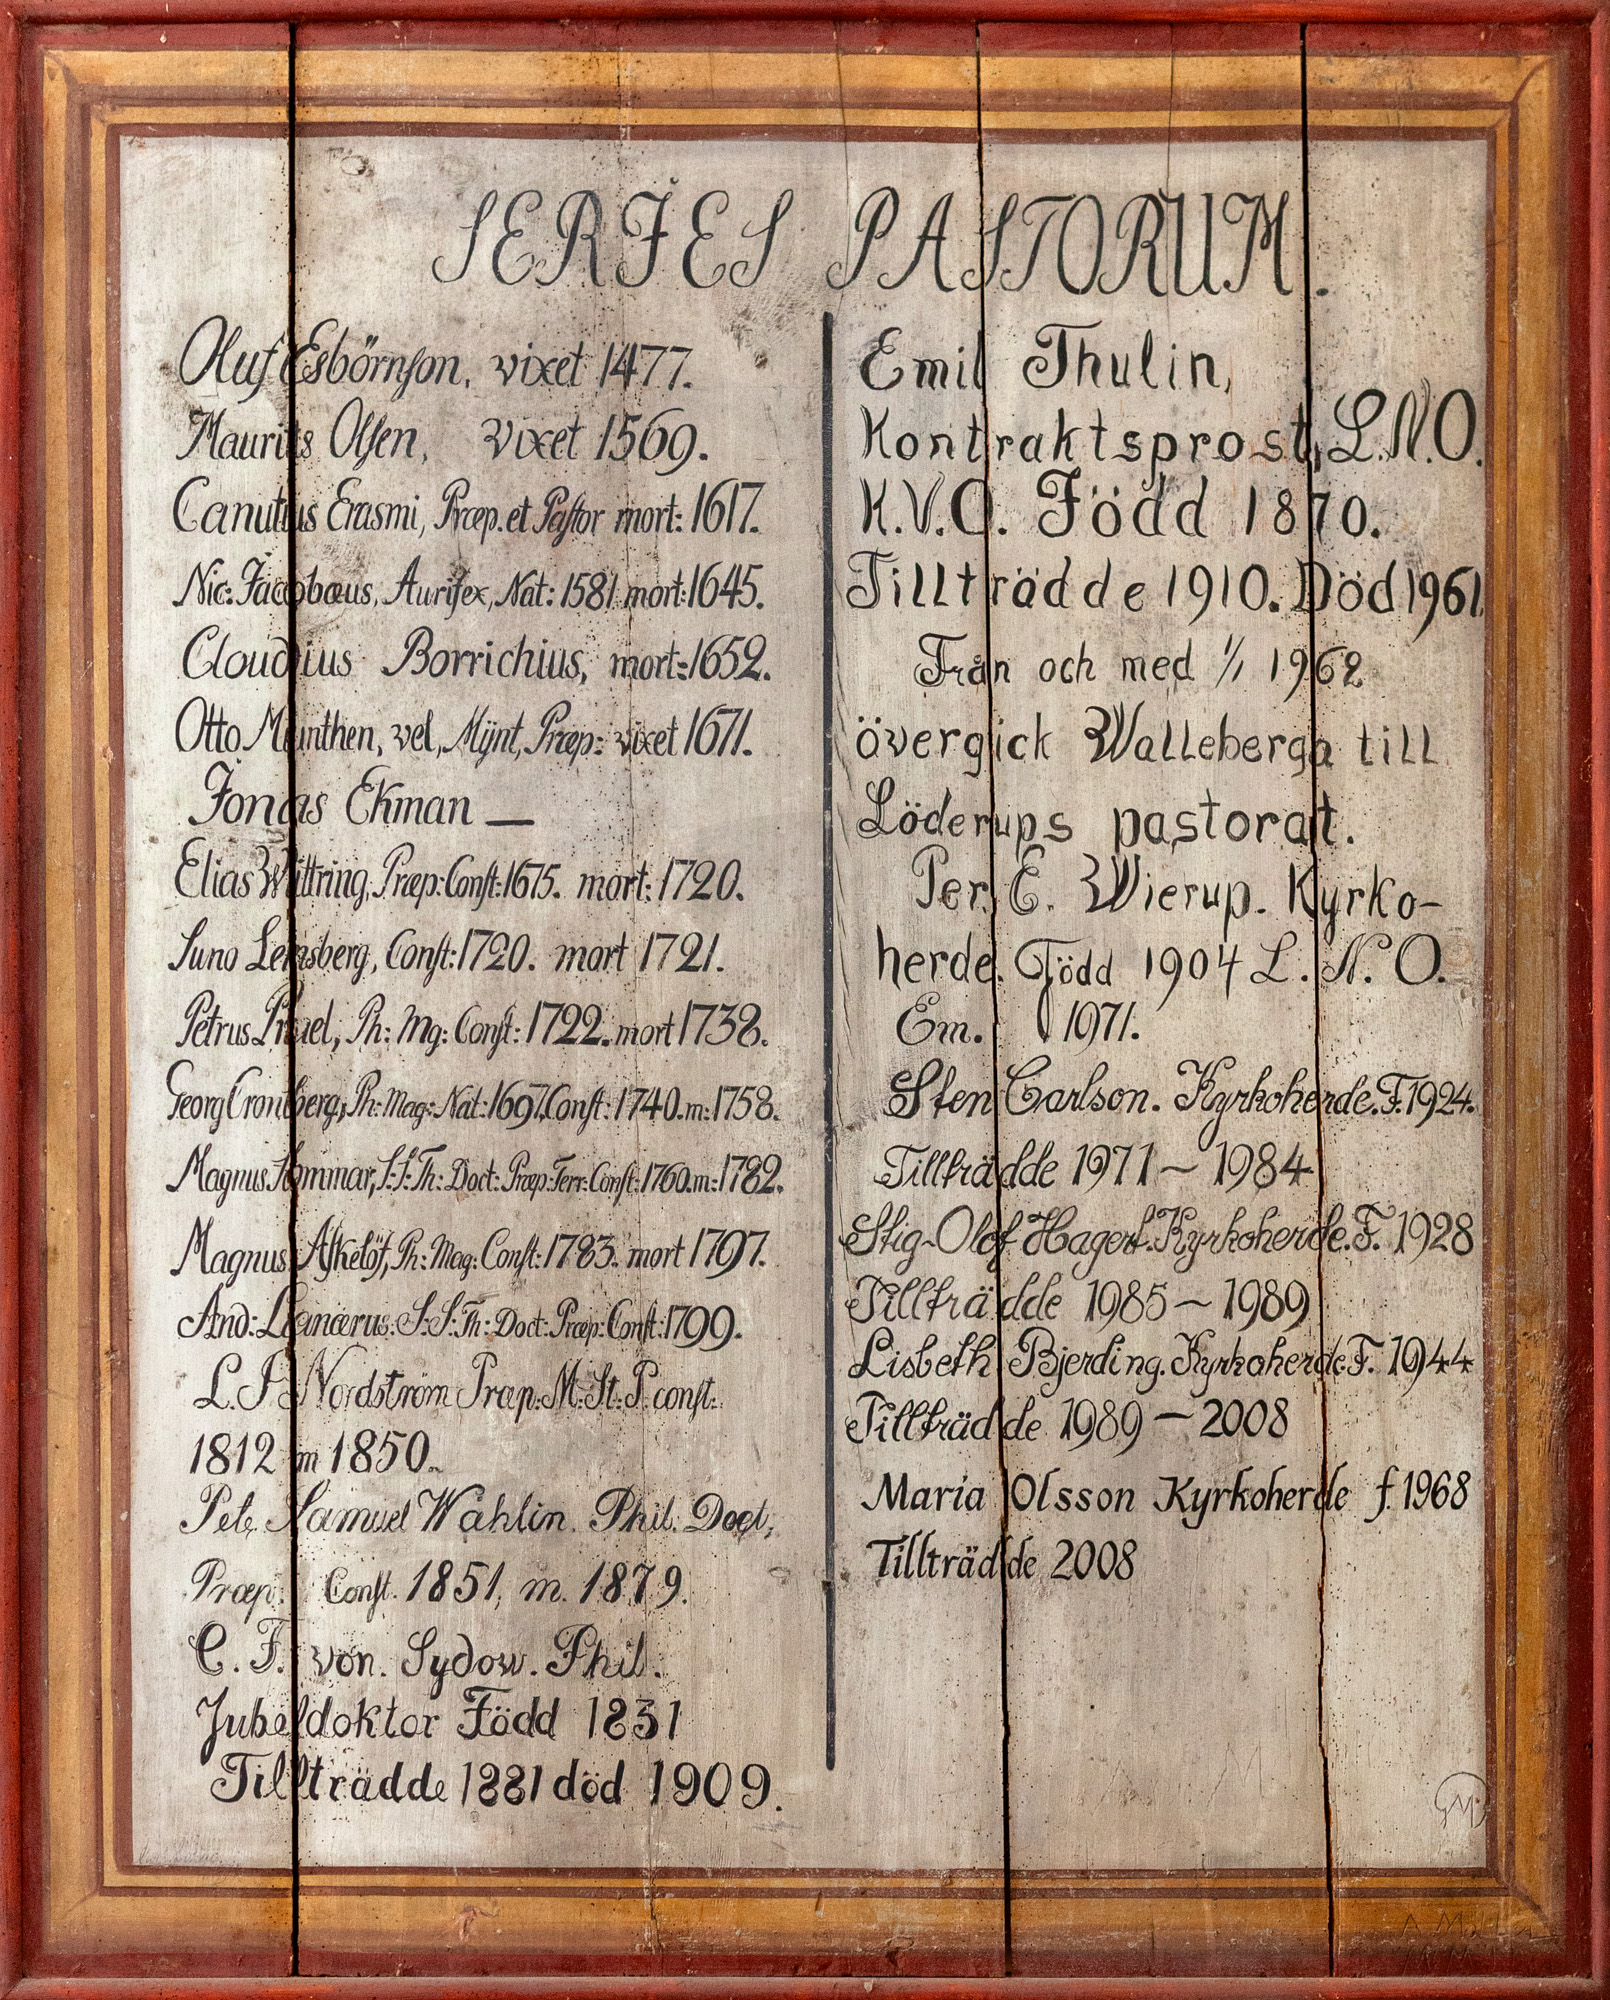 SERIES PASTORUM.
Oluf Esbörnson, vixet 1477.
Maurits Olsen, vixet 1569.
Canutius Erasmi, Præp. et Pastor mort: 1617.
Nic: Jacobæus, Aurifex, Nat: 1581 mort: 1645.
Cloudius Borrichius, mort: 1652.
Otto Munthen, vel, Mÿnt, Præp: vixet 1671.
Jonas Ekman —
Elias Wittring, Præp: Const: 1675. mort: 1720.
Suno Lemsberg, Const: 1720. mort 1721.
Petrus Ph: Mg: Const: 1722. mort 1738.
Georg Cronberg, Ph: Mag: Nat: 1697. Const: 1740. m: 1758.
Magnus S:S: Th: Doct: Præp: Terr: Const: 1760. m: 1782.
Magnus Askelöf, Ph: Mag: Const: 1783. mort 1797.
And: S:S: Th: Doct: Præp: Const: 1799.
L. P. Nordström Præp: M: St: P. const:
1812 m 1850.
Pet. Samuel Wahlin. Phil. Doct,
Præp: Const. 1851, m. 1879.
C. F. von. Sydow. Phil.
Jubeldoktor Född 1831
Tillträdde 1881 död 1909.
Emil Thulin,
Kontraktsprost, L.N.O.
K.V.O. Född 1870.
Tillträdde 1910. Död 1961.
Från och med 1/1 1962
övergick Walleberga till
Löderups pastorat.
Per E. Wierup. Kyrko-
herde. Född 1904 L. N. O.
Em. 1971.
Sten Carlson. Kyrkoherde. F. 1924.
Tillträdde 1971 – 1984
Stig-Olof Hagert. Kyrkoherde. F. 1928
Tillträdde 1985 – 1989
Lisbeth Bjerding. Kyrkoherde F. 1944
Tillträdde 1989 – 2008
Maria Olsson Kyrkoherde f. 1968
Tillträdde 2008